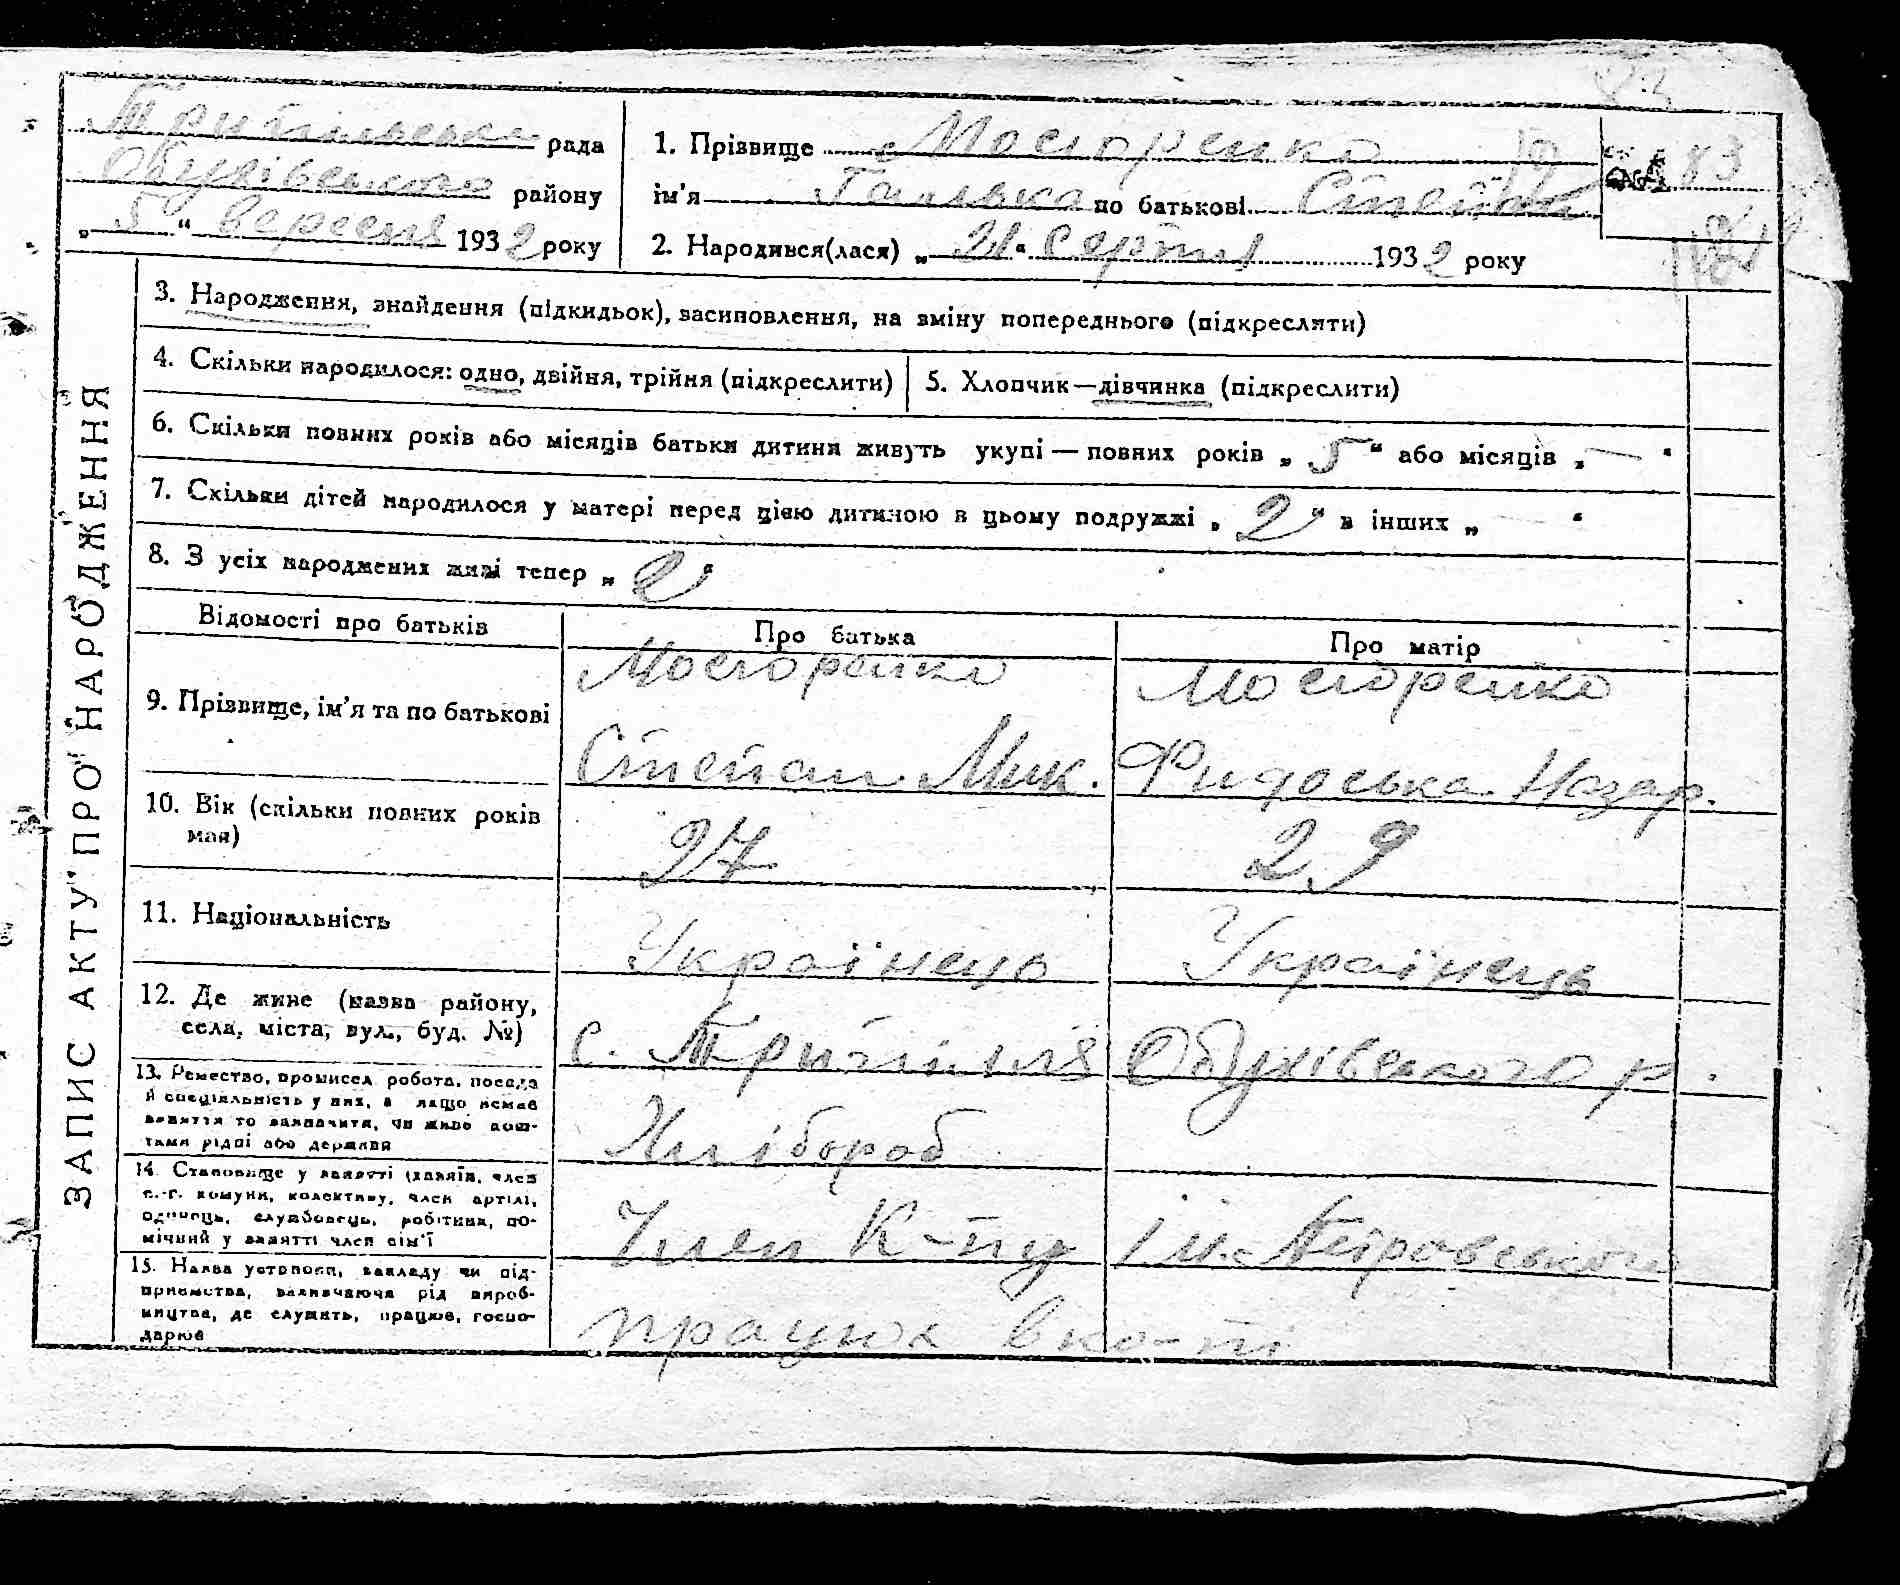 Трипільська рада
Обухівського району
„5“ вересня 1932 року
1. Прізвище Мосюренко
ім'я Галька по батькові Степан
2. Народився(лася) „21“ серпня 1932 року
№ 83
3. Народження, знайдення (підкидьок), засиновлення, на зміну попереднього (підкреслити)
4. Скільки народилося: одно, двійня, трійня (підкреслити)
5. Хлопчик—дівчинка (підкреслити)
6. Скільки повних років або місяців батьки дитини живуть укупі — повних років „5“ або місяців „—“
7. Скільки дітей народилося у матері перед цією дитиною в цьому подружжі „2“ в інших „ “
8. З усіх народжених живі тепер „2“
ЗАПИС АКТУ ПРО НАРОДЖЕННЯ
Відомості про батьків
Про батька
Про матір
9. Прізвище, ім'я та по батькові
Мосюренко
Степан Мик.
Мосюренко
Фидоська Назар.
10. Вік (скільки повних років
має)
27
29
11. Національність
Українець
Українець
12. Де живе (назва району,
села, міста, вул., буд. №)
с. Трипілля Обухівського р.
13. Ремество, промисел, робота, посада
й спеціяльність у них, а якщо немає
заняття то зазначити, чи живе кош-
тами рідні або держави
Хлібороб
14. Становище у занятті (хазяїн, член
с.-г. комуни, колективу, член артілі,
одинець, службовець, робітник, по-
мічний у занятті член сім'ї
Член К-пу ім. Петровського
15. Назва установи, закладу чи під-
приємства, зазначаючи рід вироб-
ництва, де служить, працює, госпо-
дарює
працює в ко-пі